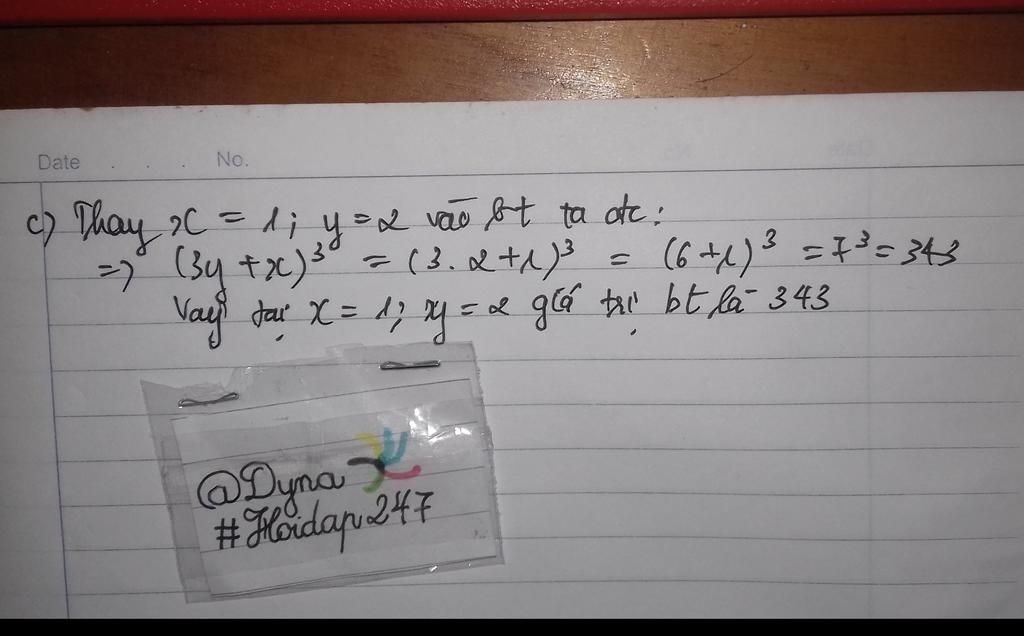 Date . . . No.
c) Thay x = 1; y = 2 vào bt ta đc:
=> (3y + x)³ = (3.2+1)³ = (6+1)³ = 7³ = 343
Vậy tại x = 1; y = 2 giá trị bt là 343
@Dyna
#Hoidap247